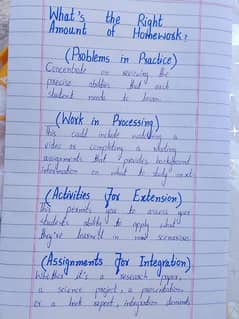 What's the Right
Amount of Homework?
(Problems in Practice)
Concentrate on reviewing the
precise abilities that each
student needs to learn.
(Work in Processing)
This could include watching a
video or completing a
assignments that provides background
information on what to study next
(Activities For Extension)
This permits you to assess your
students ability to apply what
they've learned in new scenarios
(Assignments For Integration)
Whether it's a research paper,
a science project, a presentation
or a book report, integration demands